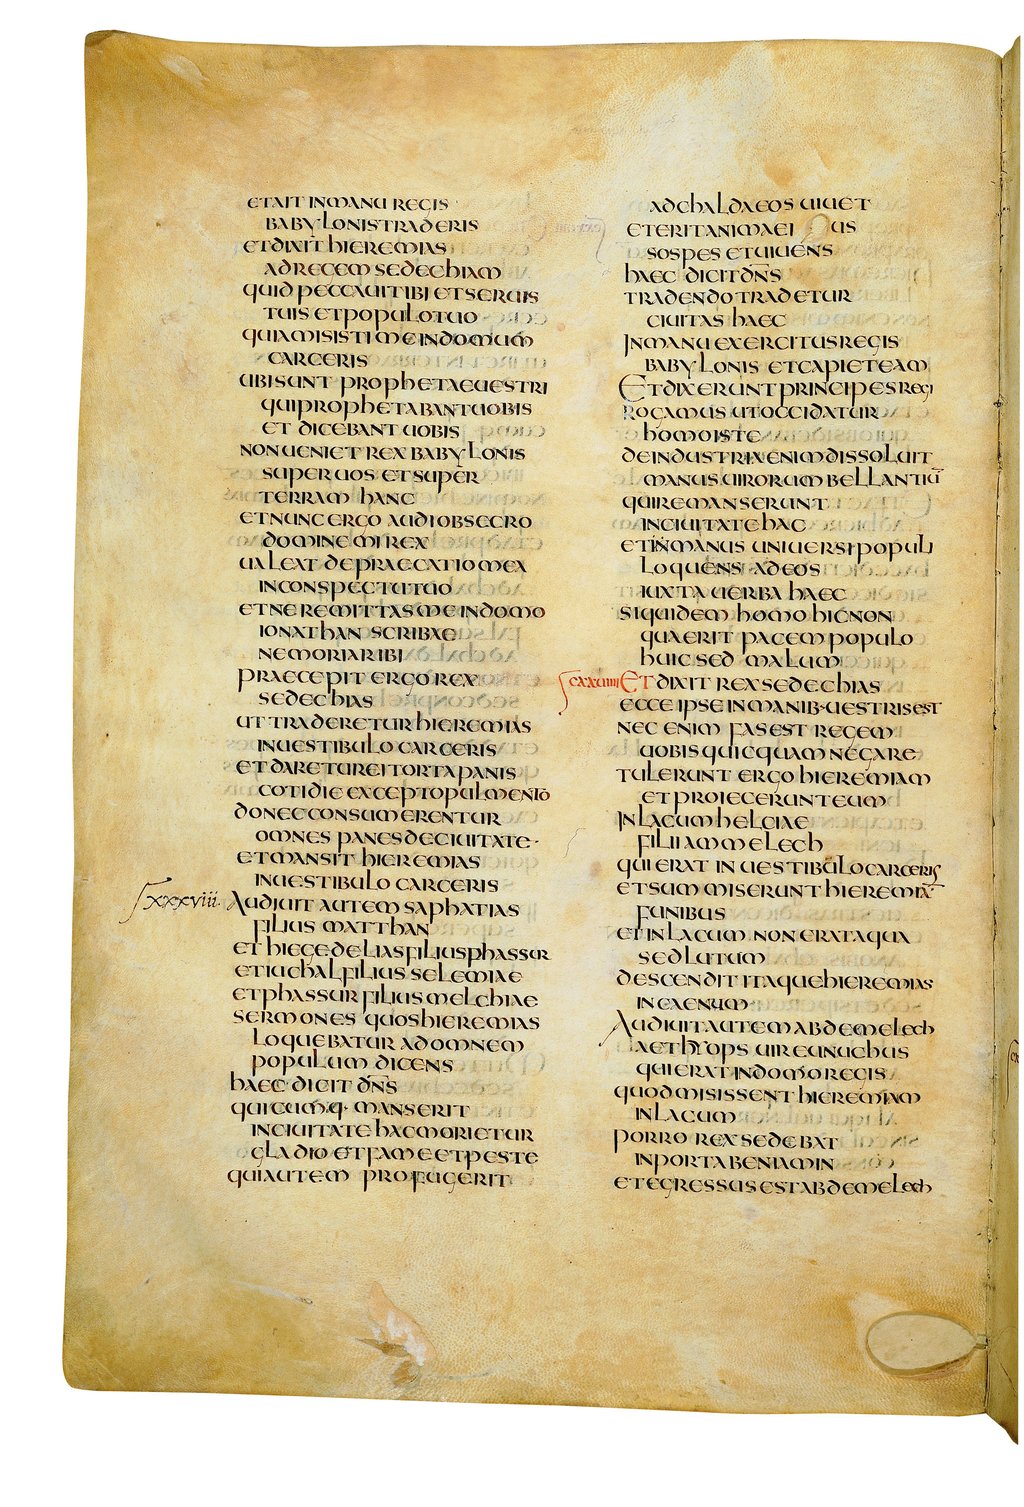 ET AIT IN MANU REGIS
BABYLONIS TRADERIS
ET DIXIT HIEREMIAS
AD REGEM SEDECHIAM
QUID PECCAUI TIBI ET SERUIS
TUIS ET POPULO TUO
QUIA MISISTI ME IN DOMUM
CARCERIS
UBI SUNT PROPHETAE UESTRI
QUI PROPHETABANT UOBIS
ET DICEBANT UOBIS
NON UENIET REX BABYLONIS
SUPER UOS ET SUPER
TERRAM HANC
ET NUNC ERGO AUDI OBSECRO
DOMINE MI REX
UALEAT DEPRAECATIO MEA
IN CONSPECTU TUO
ET NE REMITTAS ME IN DOMO
IONATHAN SCRIBAE
NE MORIAR IBI
PRAECEPIT ERGO REX
SEDECHIAS
UT TRADERETUR HIEREMIAS
IN UESTIBULO CARCERIS
ET DARETUR EI TORTA PANIS
COTIDIE EXCEPTO PULMENTO
DONEC CONSUMERENTUR
OMNES PANES DE CIUITATE·
ET MANSIT HIEREMIAS
IN UESTIBULO CARCERIS
xxxviii. AUDIUIT AUTEM SAPHATIAS
FILIUS MATTHAN
ET HIEGEDELIAS FILIUS PHASSUR
ET IUCHAL FILIUS SELEMIAE
ET PHASSUR FILIUS MELCHIAE
SERMONES QUOS HIEREMIAS
LOQUEBATUR AD OMNEM
POPULUM DICENS
HAEC DICIT DN̄S
QUICUMQ· MANSERIT
IN CIUITATE HAC MORIETUR
GLADIO ET FAME ET PESTE
QUI AUTEM PROFUGERIT
AD CHALDAEOS UIUET
ET ERIT ANIMA EIUS
SOSPES ET UIUENS
HAEC DICIT DN̄S
TRADENDO TRADETUR
CIUITAS HAEC
IN MANU EXERCITUS REGIS
BABYLONIS ET CAPIET EAM
ET DIXERUNT PRINCIPES REGI
ROGAMUS UT OCCIDATUR
HOMO ISTE
DE INDUSTRIA ENIM DISSOLUIT
MANUS UIRORUM BELLANTIŪ
QUI REMANSERUNT
IN CIUITATE HAC
ET IN MANUS UNIUERSI POPULI
LOQUENS AD EOS
IUXTA UERBA HAEC
SIQUIDEM HOMO HIC NON
QUAERIT PACEM POPULO
HUIC SED MALUM
CXXUIIII ET DIXIT REX SEDECHIAS
ECCE IPSE IN MANIB· UESTRIS EST
NEC ENIM FAS EST REGEM
UOBIS QUICQUAM NEGARE
TULERUNT ERGO HIEREMIAM
ET PROIECERUNT EUM
IN LACUM HELCIAE
FILII AMMELECH
QUI ERAT IN UESTIBULO CARCERIS
ET SUMMISERUNT HIEREMIĀ
FUNIBUS
ET IN LACUM NON ERAT AQUA
SED LUTUM
DESCENDIT ITAQUE HIEREMIAS
IN CAENUM
AUDIUIT AUTEM ABDEMELECH
AETHYOPS UIR EUNUCHUS
QUI ERAT IN DOMO REGIS
QUOD MISISSENT HIEREMIAM
IN LACUM
PORRO REX SEDEBAT
IN PORTA BENIAMIN
ET EGRESSUS EST ABDEMELECH